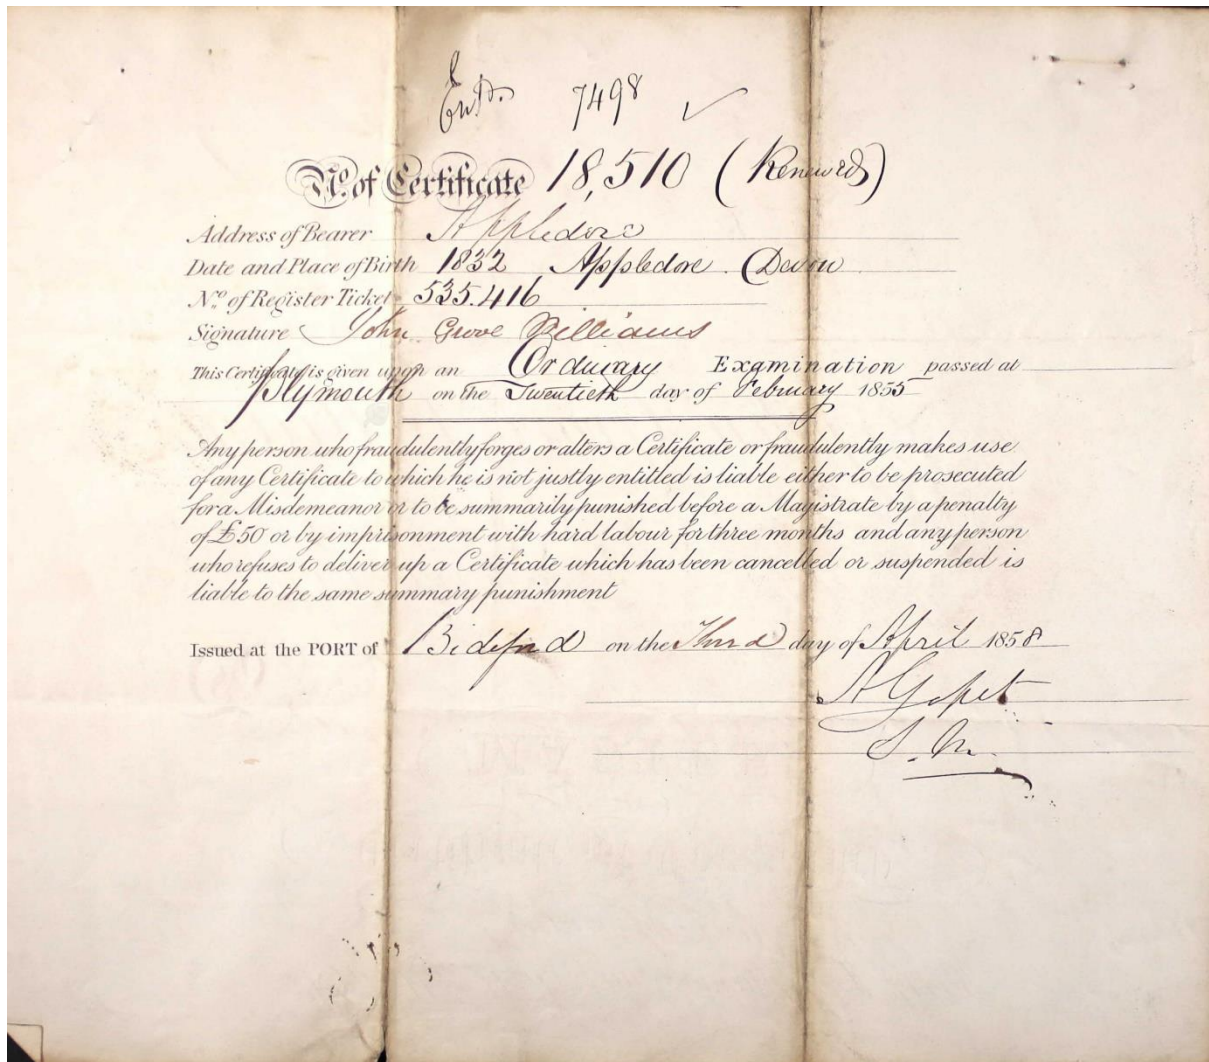 Entd. 7498 ✓
No. of Certificate 18,510 (Renewed)
Address of Bearer Appledore
Date and Place of Birth 1832 Appledore Devon
No. of Register Ticket 535.416
Signature John Grove Williams
This Certificate is given upon an Ordinary Examination passed at
Plymouth on the Twentieth day of February 1855
Any person who fraudulently forges or alters a Certificate or fraudulently makes use
of any Certificate to which he is not justly entitled is liable either to be prosecuted
for a Misdemeanor or to be summarily punished before a Magistrate by a penalty
of £50 or by imprisonment with hard labour for three months and any person
who refuses to deliver up a Certificate which has been cancelled or suspended is
liable to the same summary punishment
Issued at the PORT of Bideford on the Third day of April 1858